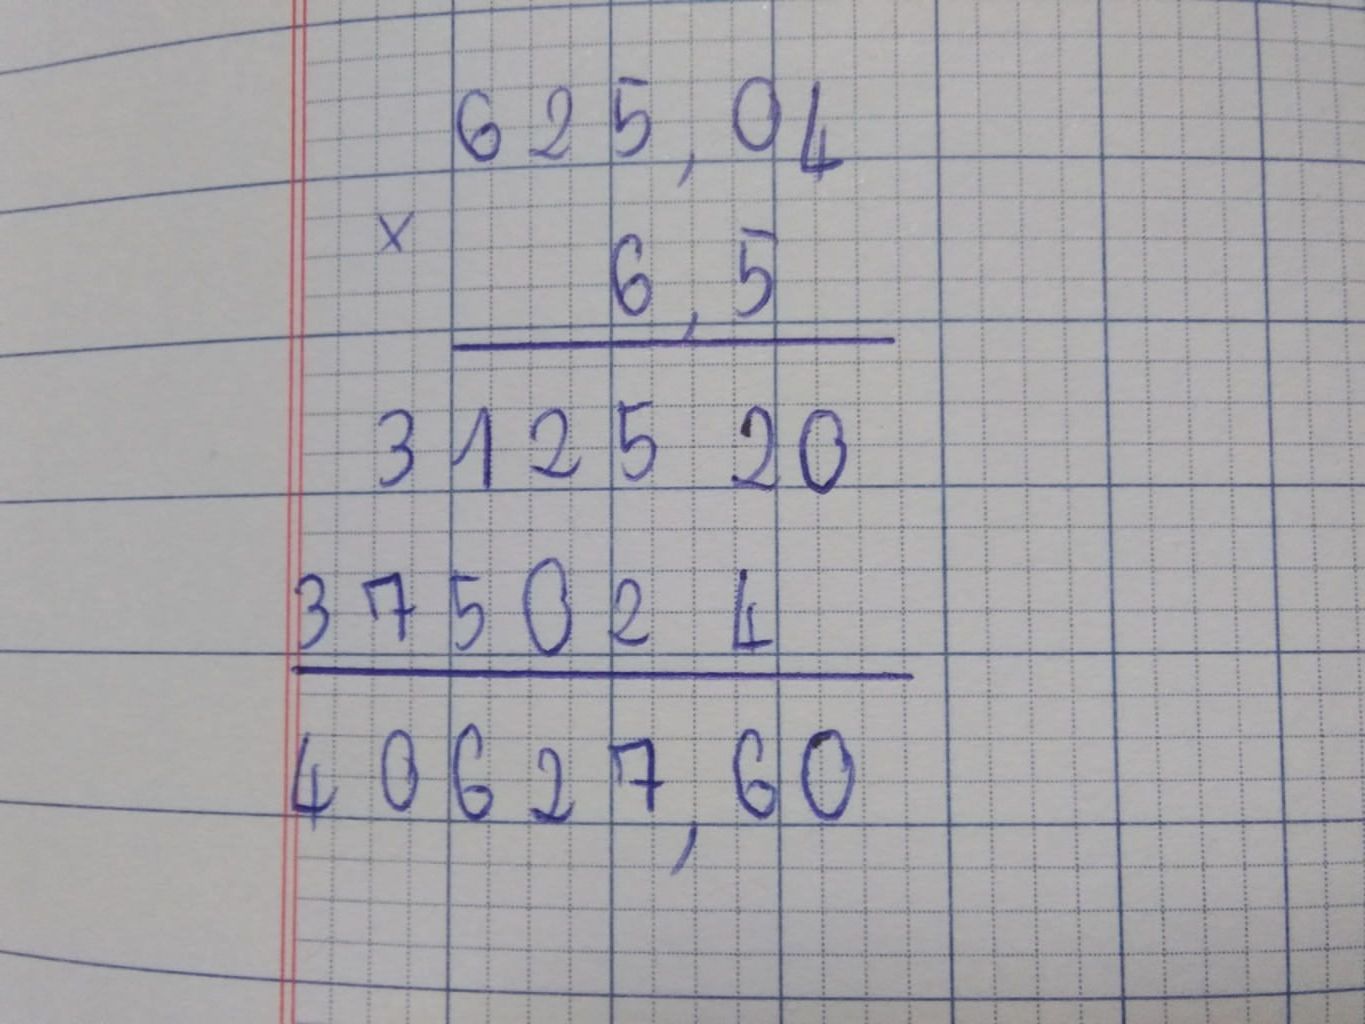 625,04
× 6,5
312520
375024
40627,60